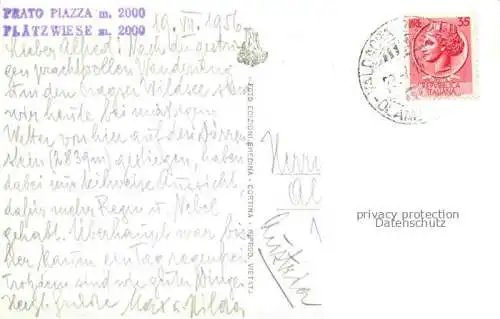 PRATO PIAZZA m. 2000
PLÄTZWIESE m. 2000
19. VII. 1956
Lieber Alfred! Nach der gestrigen
prachtvollen Wanderung
um den Pragser Wildsee sind
wir heute bei mässigem
Wetter von hier auf den Dürren-
stein (2839m) gestiegen, haben
dabei nur teilweise Aussicht
dafür mehr Regen u. Nebel
gehabt. Überhaupt war bis-
her kaum ein Tag regenfrei
trotzdem sind wir guter Dinge.
Herzl. Grüße Max u. Hilda
FOTO EDIZIONI GHEDINA - CORTINA - RIPROD. VIETATA
LIRE 35
REPUBBLICA
ITALIANA
Herrn
Al
Austria
privacy protection
Datenschutz